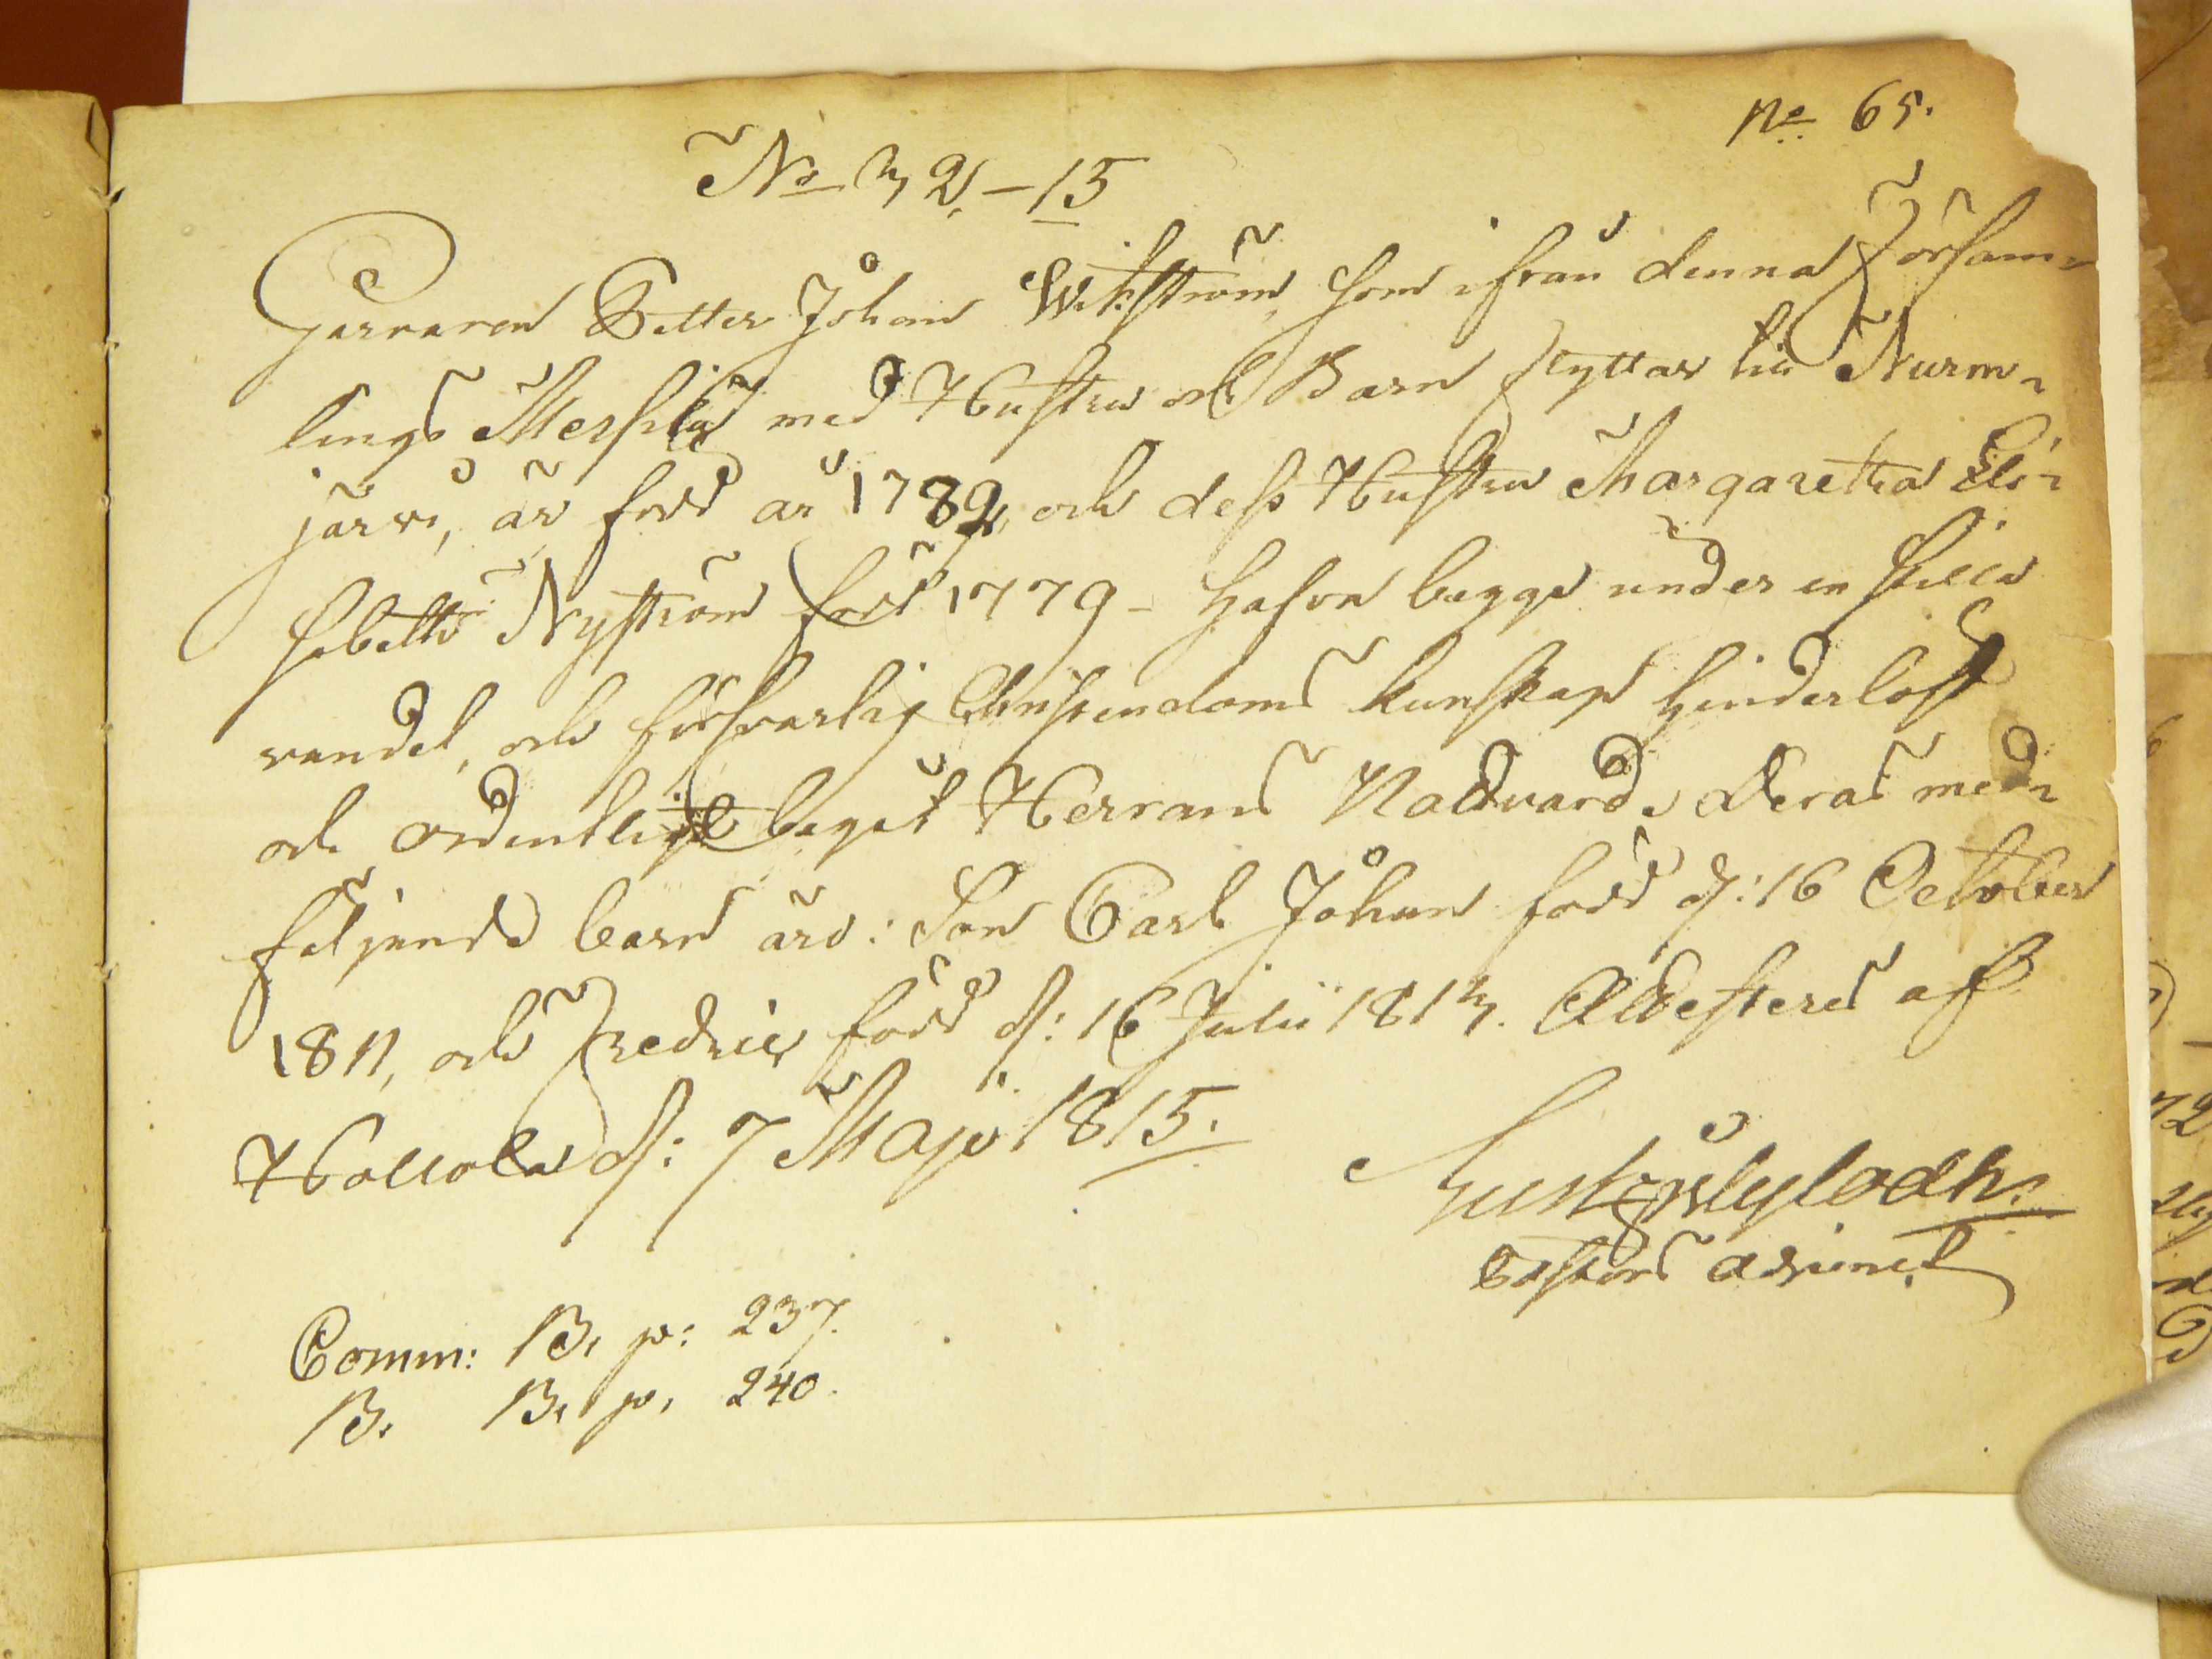 No 65.
No 32.-15
Garfvaren Petter Johan Wikström, som ifrån denna Försam-
lings med Hustru och Barn flyttar till Nurm-
järvi, är född år 1782, och dess Hustru Margaretha Eli-
sabetha Nyström född 1779 - hafva begge under en stilla
vandel, och försvarlig Christendoms kunskap hinderlöst
och ordentligt begåt Herrans Nattvard. Deras med-
följande barn äro: Son Carl Johan född d: 16 October
1811, och Fredric född d: 16 Julii 1813. Attesteras af
Hollola d: 7 Maji 1815.
Pastors Adjunct
Comm: B. p: 237.
B. B. p. 240.